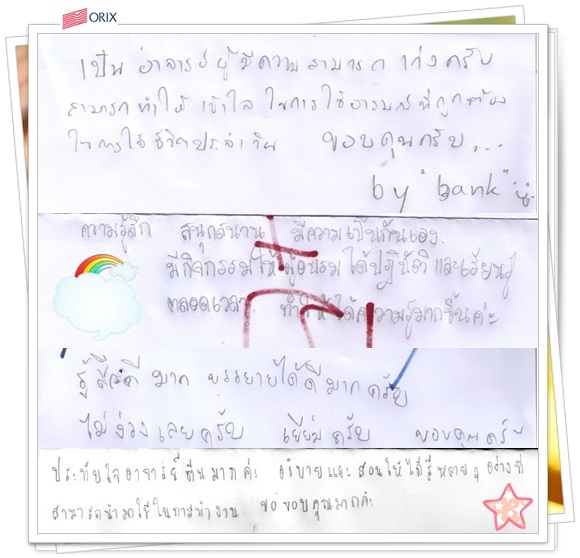 ORIX
เป็น อาจารย์ผู้มีความสามารถ เก่งครับ
สามารถทำให้ เข้าใจ ในการใช้อารมณ์ที่ถูกต้อง
ในการใช้ชีวิตประจำวัน ขอบคุณครับ...
by "bank"
ความรู้สึก สนุกสนาน มีความเป็นกันเอง.
มีกิจกรรมให้ผู้อบรมได้ปฏิบัติ และเรียนรู้
ตลอดเวลา ทำให้ได้ความรู้มากขึ้นค่ะ
รู้สึกดีมาก บรรยายได้ดีมากครับ
ไม่ง่วงเลยครับ เยี่ยมครับ ขอบคุณครับ
ประทับใจอาจารย์ มากค่ะ อธิบายและสอนให้ได้รู้หลายๆ อย่างที่
สามารถนำมาใช้ในการทำงาน ขอขอบคุณมากค่ะ